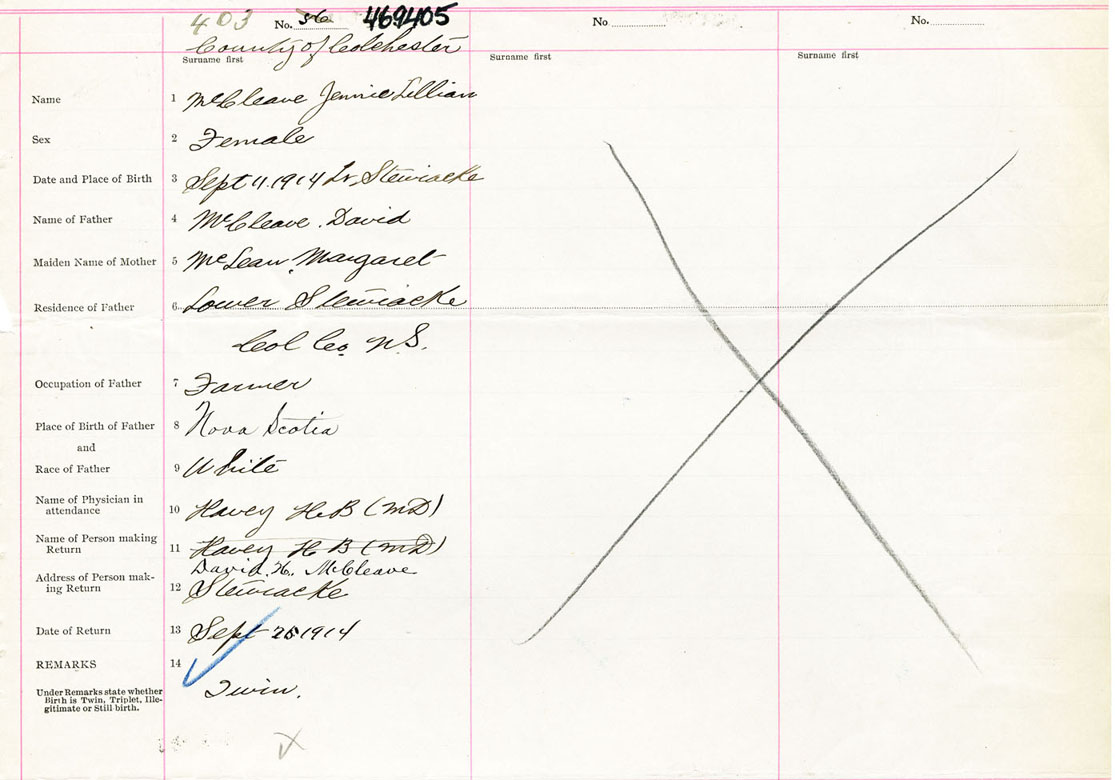 403 No. 36 469405 No No.
County of Colchester
Surname first Surname first Surname first
Name 1 McCleave Jennie Lillian
Sex 2 Female
Date and Place of Birth 3 Sept 11. 1914 Lr. Stewiacke
Name of Father 4 McCleave. David
Maiden Name of Mother 5 McLean, Margaret
Residence of Father 6 Lower Stewiacke
Col Co. N.S.
Occupation of Father 7 Farmer
Place of Birth of Father 8 Nova Scotia
and
Race of Father 9 White
Name of Physician in
attendance 10 Havey H. B (MD)
Name of Person making
Return 11 Havey H B (MD)
David. H. McCleave
Address of Person mak-
ing Return 12 Stewiacke
Date of Return 13 Sept 1914
REMARKS 14
Under Remarks state whether
Birth is Twin, Triplet, Ille-
gitimate or Still birth.
Twin.